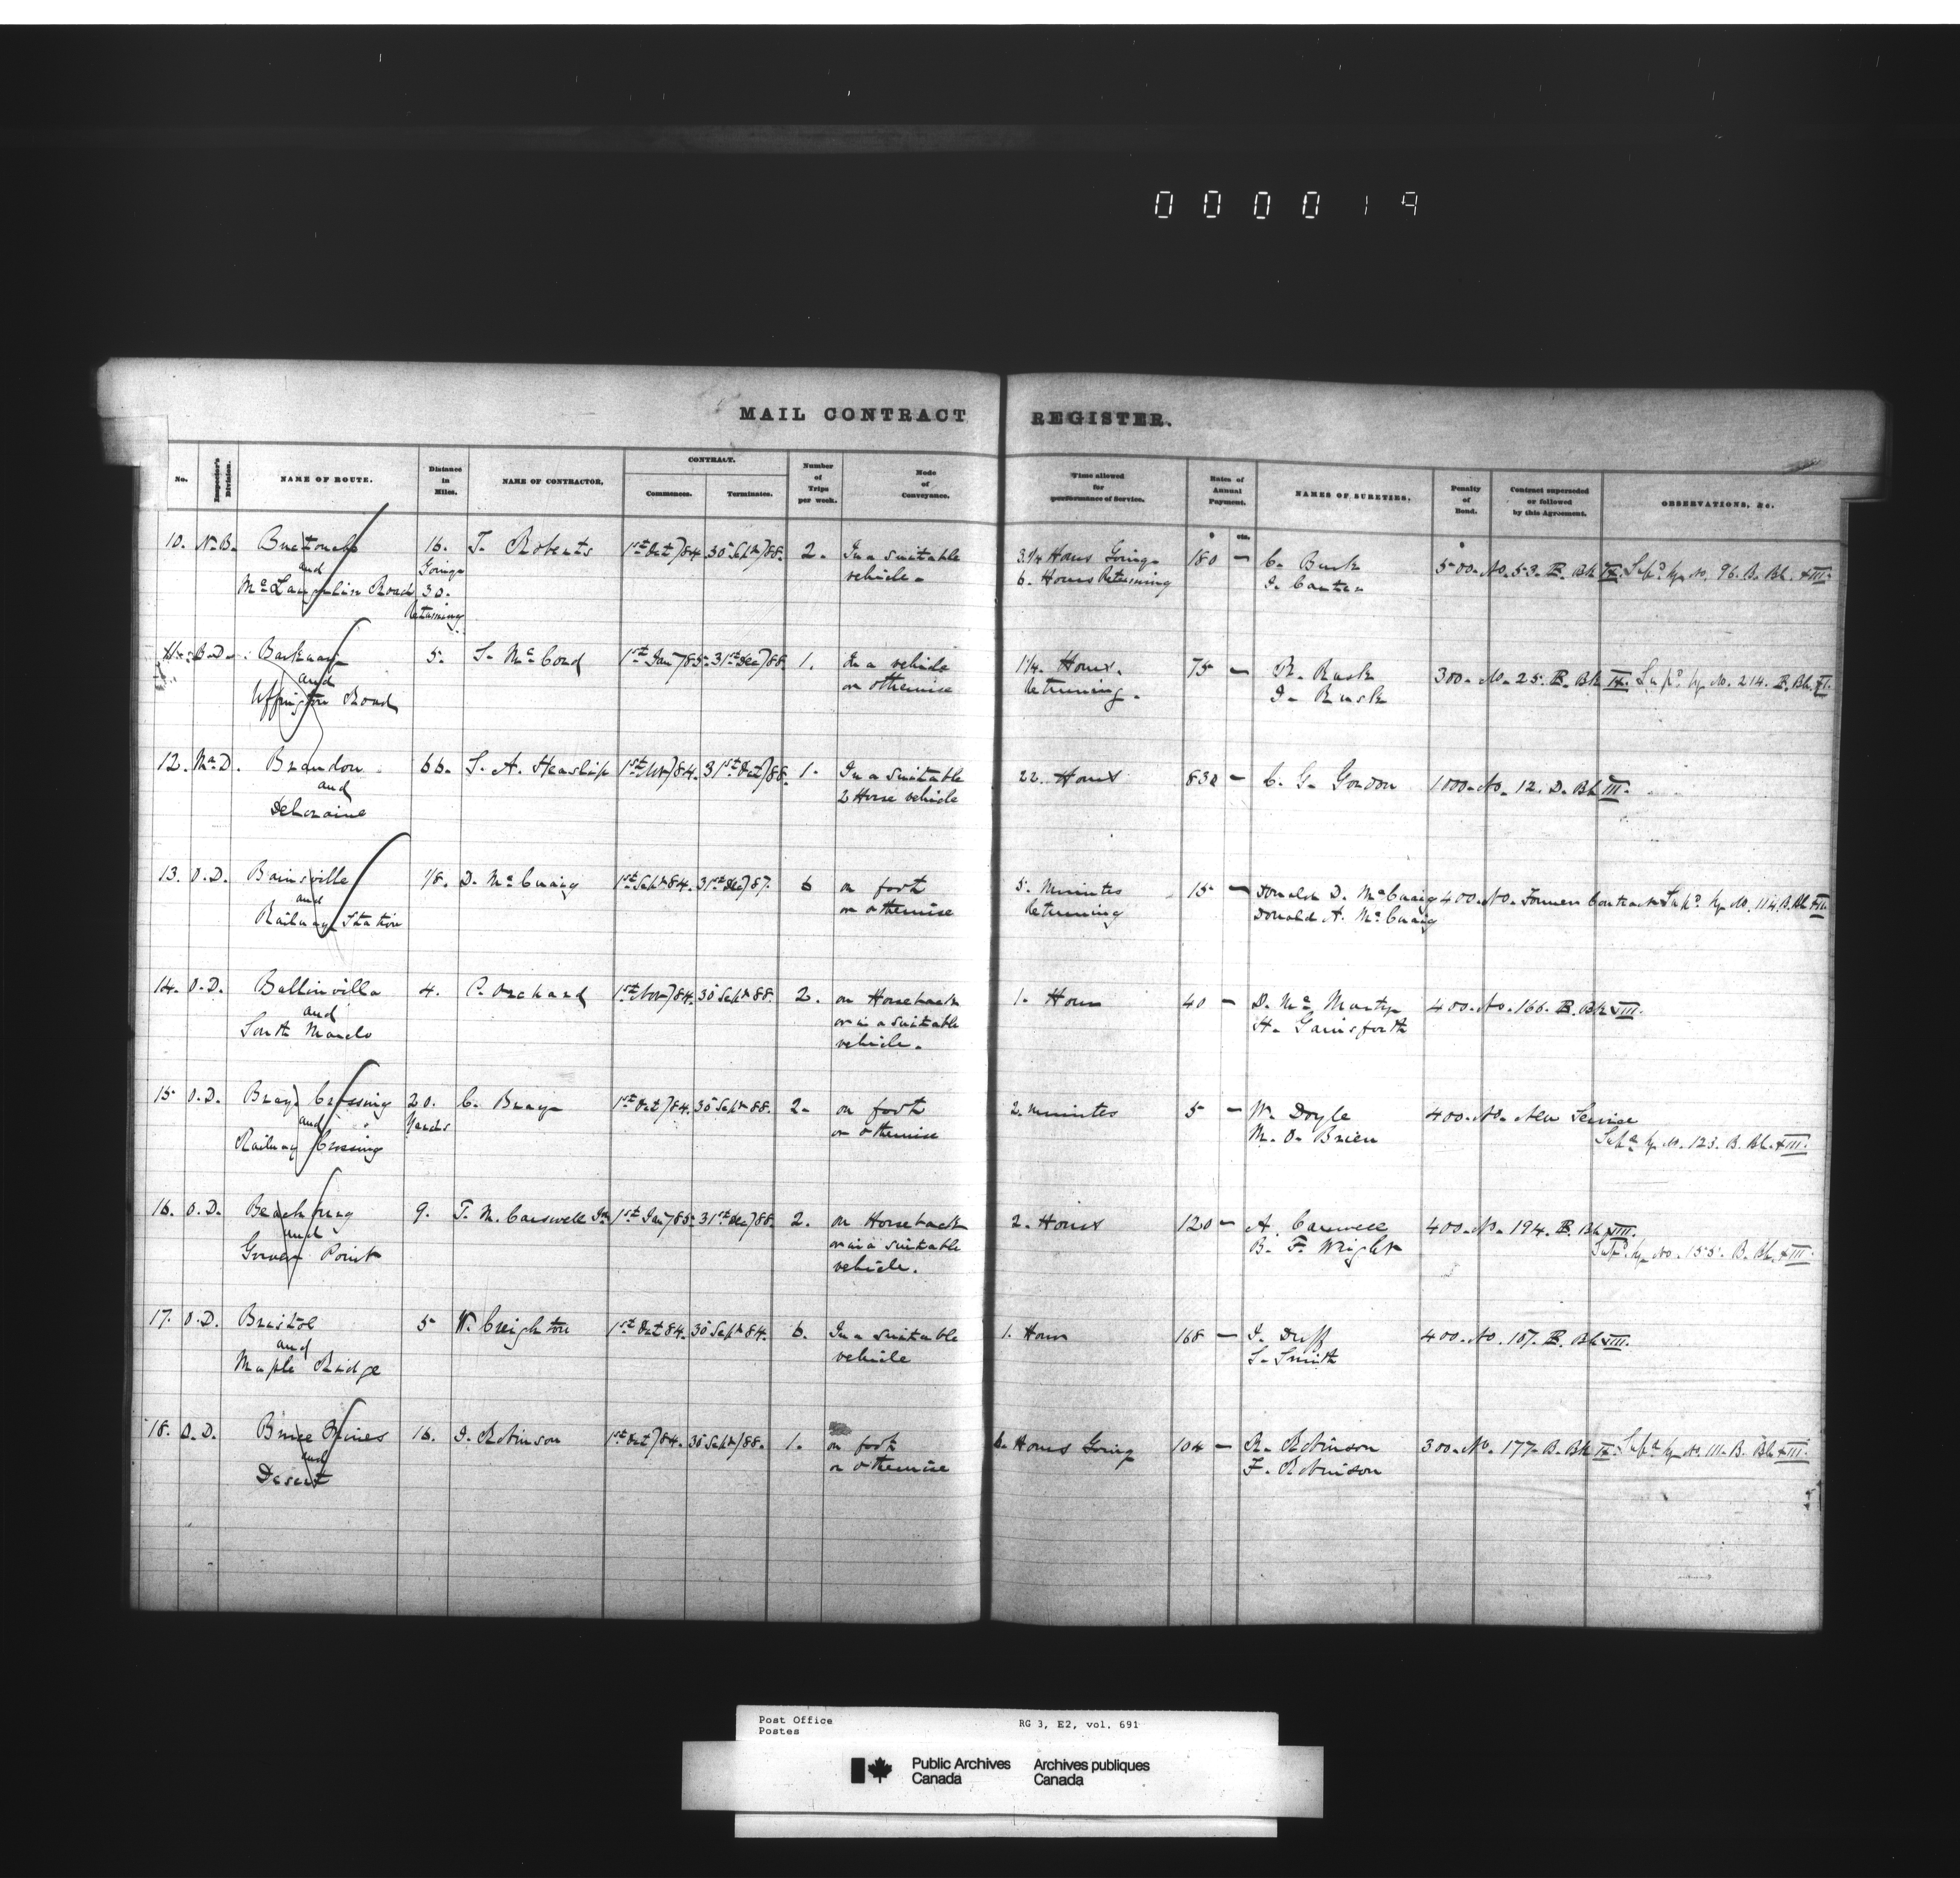 000019
MAIL CONTRACT REGISTER.
No. Inspector's Division. NAME OF ROUTE. Distance in Miles. NAME OF CONTRACTOR. CONTRACT. Commences. Terminates. Number of Trips per week. Mode of Conveyance. Time allowed for performance of Service. Rates of Annual Payment. NAMES OF SURETIES. Penalty of Bond. Contract superseded or followed by this Agreement. OBSERVATIONS, &c.
$ cts. $
10. N.B. Buctouche 16. T. Roberts 1st Oct/84. 30 Sept/88. 2. In a suitable 3 1/4 Hours Going 180 — C. Burk 500. No. 53. B. Bk IX. Sup'd by No. 96. B. Bk. XIII.
and Going vehicle. 6. Hours Returning J. Canter
McLaughlin Road 30.
Returning
11. B.D. and 5. S. McCord 1st Jan/85. 31st Dec/88. 1. In a vehicle 1 1/4. Hours. 75 — R. Rusk 300. No. 25. B. Bk IX. Sup'd by No. 214. B. Bk. XI.
Uffington Road or otherwise Returning. J. Rusk
12. Ma.D. Brandon 66. S. A. Heaslip 1st Nov/84. 31st Oct/88. 1. In a suitable 22. Hours 830 — C. G. Gordon 1000. No. 12. D. Bk III.
and 2 Horse vehicle
Deloraine
13. O.D. Bainsville 1/8. D. McCuaig 1st Sept 84. 31st Dec/87. 6 on foot 5. Minutes 15 — Donald D. McCuaig 400. No. Former Contract Sup'd by No. 114. B. Bk XIII.
and or otherwise Returning Donald A. McCuaig
Railway Station
14. O.D. Ballinville 4. P. Orchard 1st Nov/84. 30 Sept 88. 2. on Horseback 1. Hour 40 — D. McMartyn 400. No. 166. B. Bk VIII.
and or in a suitable H. Gainsforth
South March vehicle.
15 O.D. Brays Crossing 20. C. Bray 1st Oct/84. 30 Sept 88. 2. on foot 2. minutes 5 — W. Doyle 400. No. New Service
and Yards or otherwise M. O. Brien Sup'd by No. 123. B. Bk. XIII.
Railway Crossing
16. O.D. Beachburg 9. T. M. Carswell Jr. 1st Jan/85. 31st Dec/88. 2. on Horseback 2. Hours 120 — A. Carswell 400. No. 194. B. Bk VIII.
and or in a suitable B. F. Wright Sup'd by No. 155. B. Bk. XIII.
Gower Point vehicle.
17. O.D. Bristol 5 W. Creighton 1st Oct 84. 30 Sept 84. 6. In a suitable 1. Hour 168 — J. Duff 400. No. 187. B. Bk VIII.
and vehicle S. Smith
Maple Ridge
18. O.D. Bruce Mines 16. J. Robinson 1st Oct/84. 30 Sept/88. 1. on foot 6. Hours Going 104 — R. Robinson 300. No. 177. B. Bk IX. Sup'd by No. 111. B. Bk XIII.
and or otherwise F. Robinson
Desert
Post Office RG 3, E2, vol. 691
Postes
Public Archives Archives publiques
Canada Canada